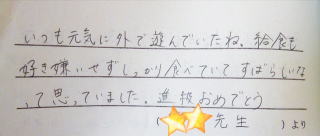 いつも元気に外で遊んでいたね、給食も
好き嫌いせずしっかり食べていてすばらしいな
って思っていました。進級おめでとう
( 先生 ) より